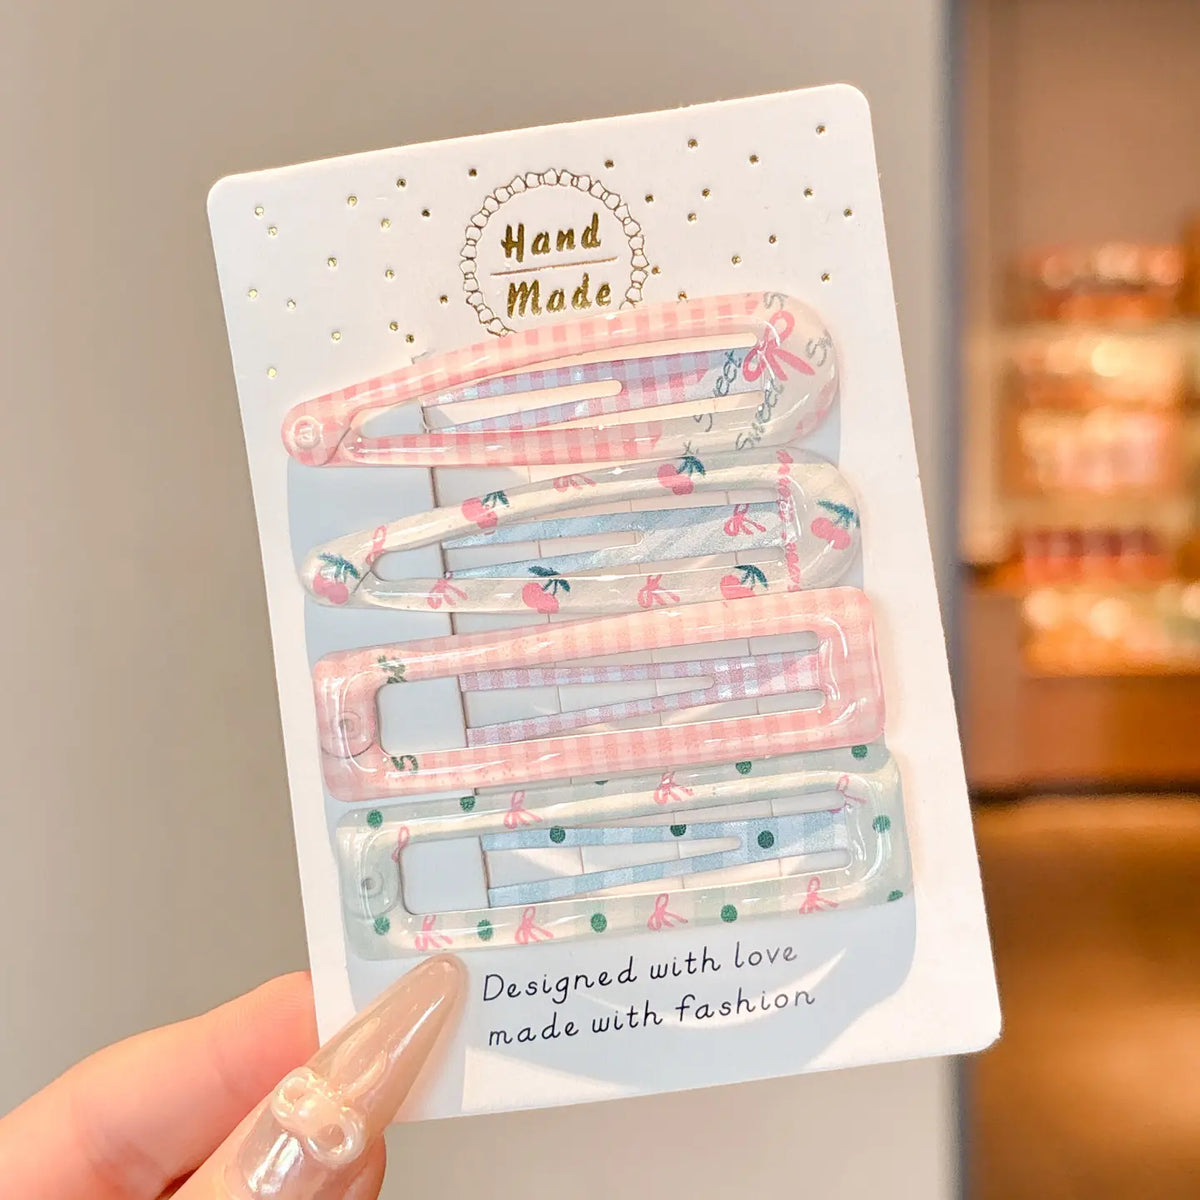 Hand
Made
Sweet
Sweet
Designed with love
made with fashion